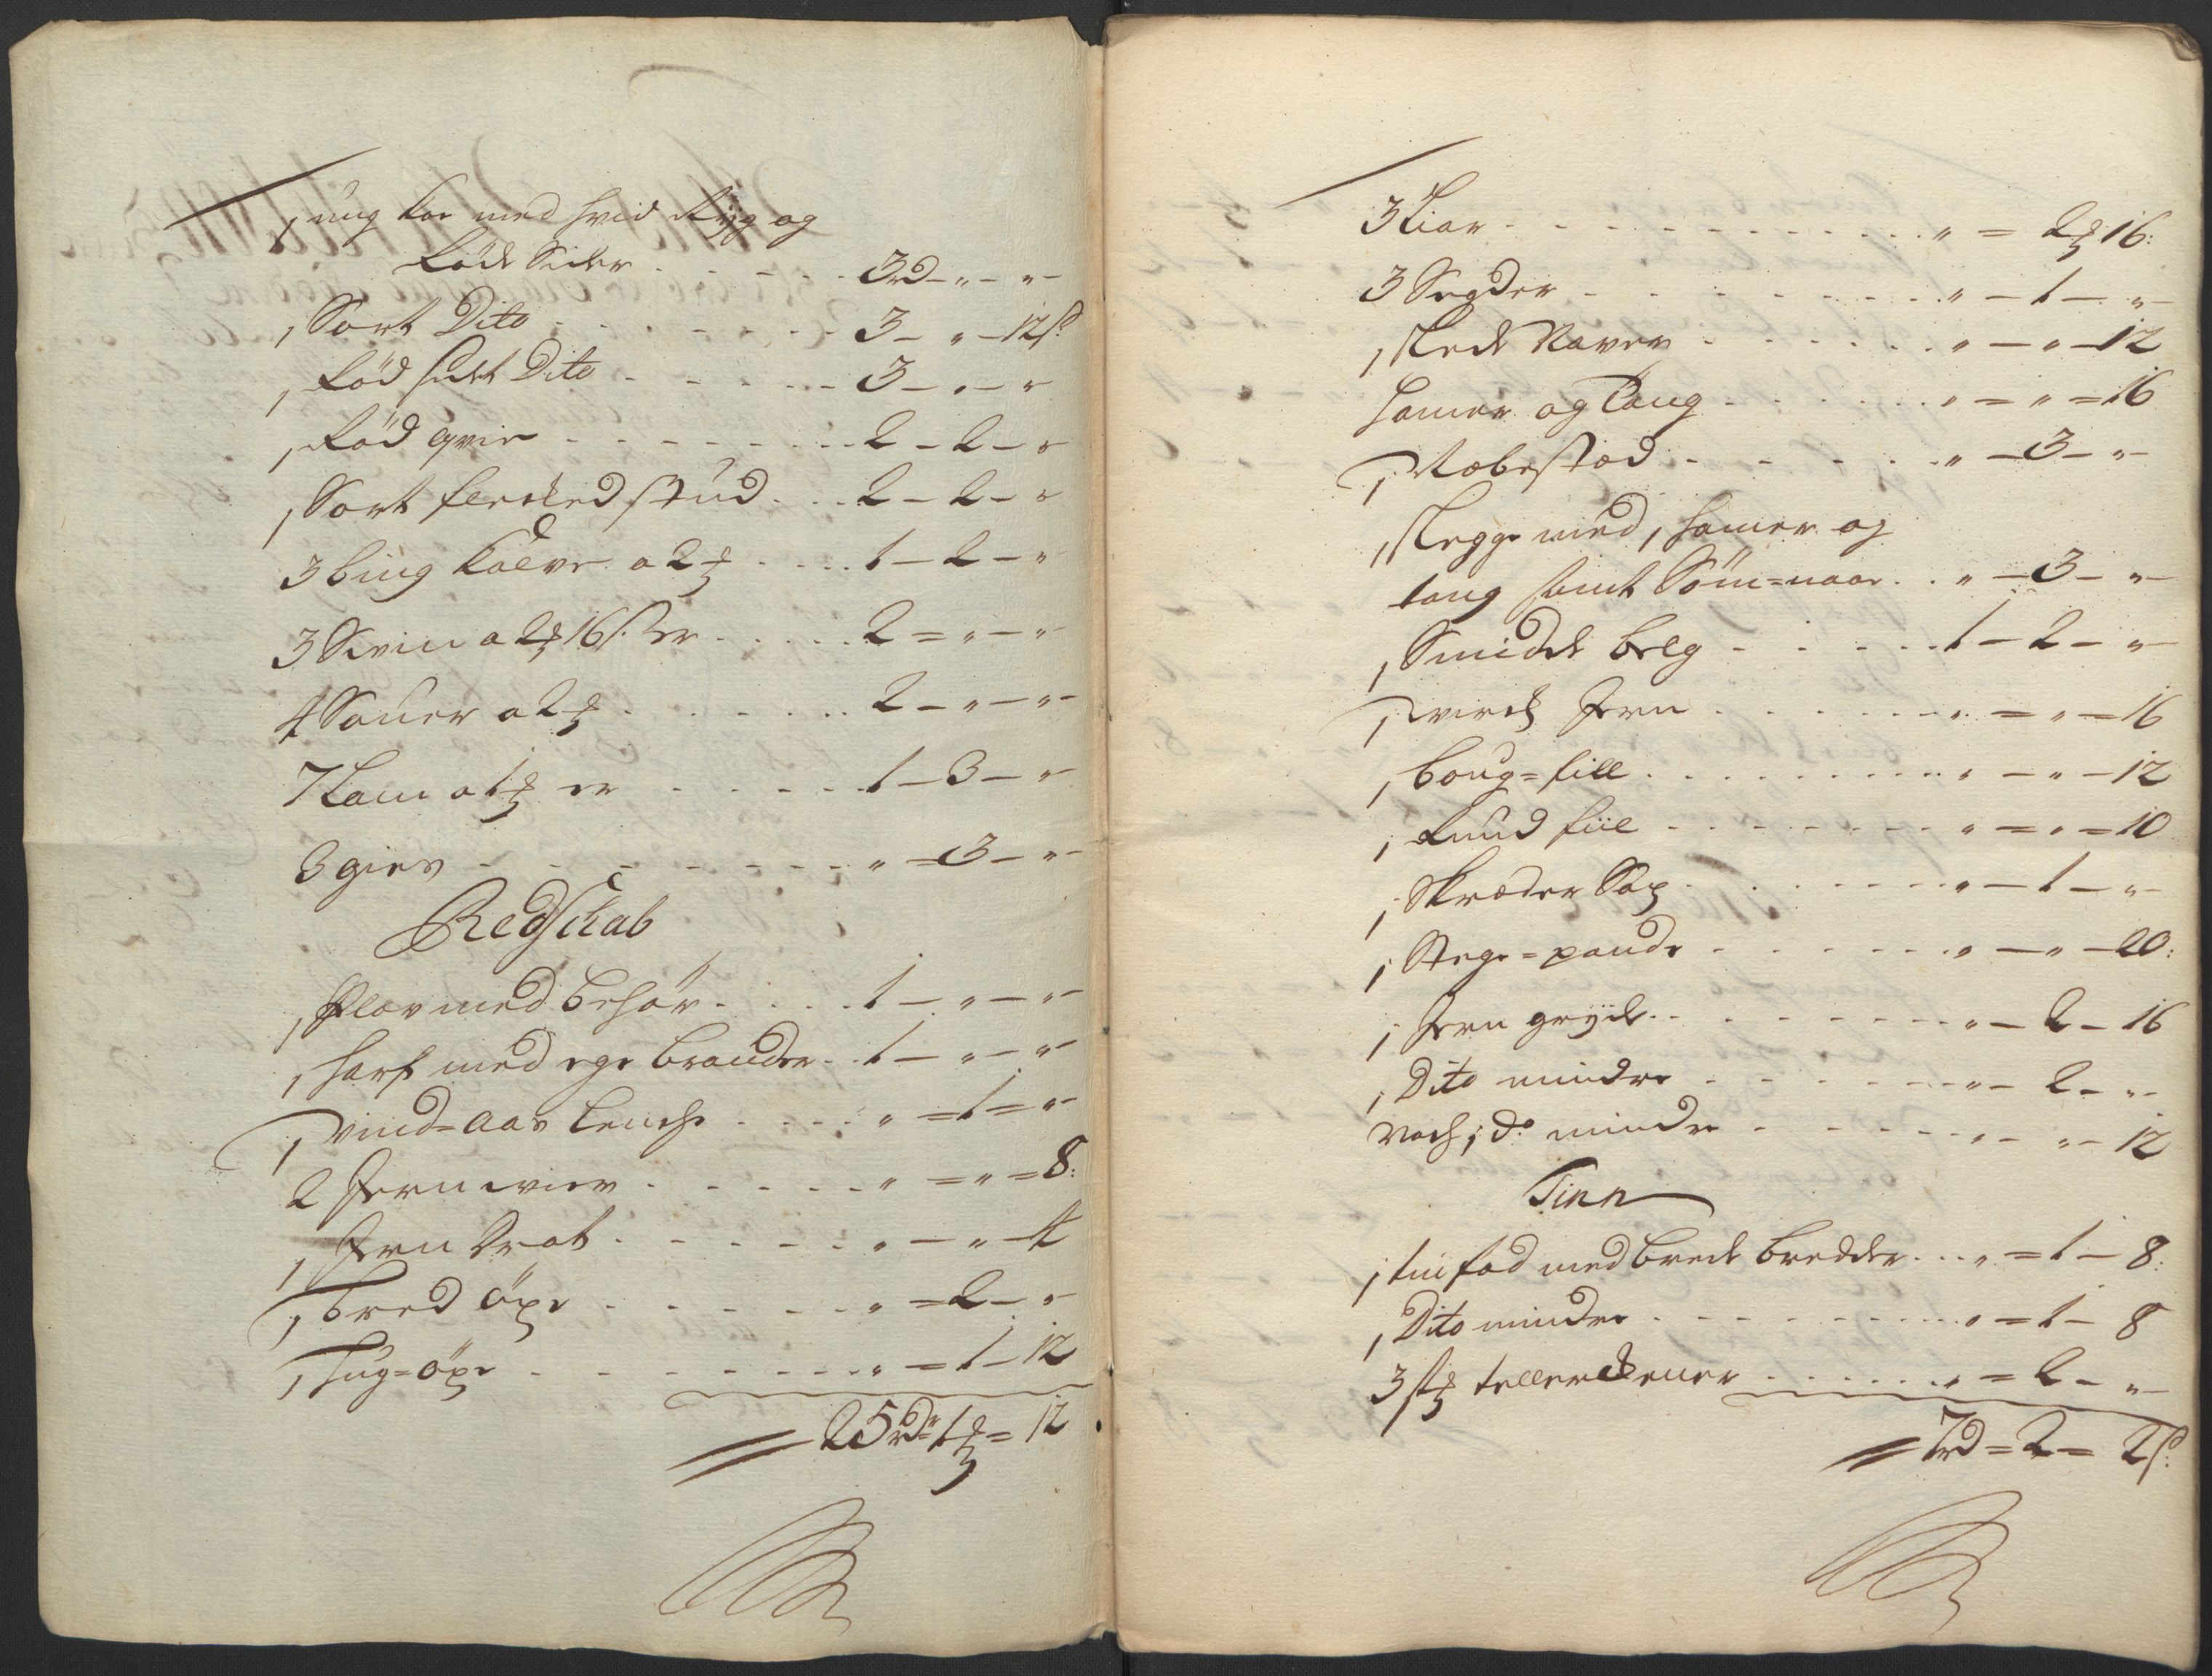 1 ung koe med hvid Ryg og
Røde Sider . . . . . 3rd - " - "
1 Sort Dito . . . . . 3 - " - 12s:
1 Rød sidet Dito . . . . . 3 - " - "
1 Rød qvie . . . . . 2 - 2 - "
1 Sort flecked stud . . . 2 - 2 - "
3 ung Kalve a 2 . . . . 1 - 2 - "
3 Sviin a 2 16s: er . . . . . 2 = " - "
4 Souer a 2 . . . . . 2 - " - "
7 Lam a 1 er . . . . . 1 - 3 - "
3 gies . . . . . " - 3 - "
Redschab
1 Plov med behør . . . . 1 - " - "
1 harf med ege brander . . 1 - " - "
1 vind=aas . . . . " = 1 = "
2 Jern . . . . . " = " = 8:
1 Jern . . . . . " - " - 4
1 bred öxe . . . . . " = 2 - "
1 hug=öxe . . . . . " = 1 - 12
25rd 1 = 12
3 Liar . . . . . " = 2 16:
3 Segder . . . . . " - 1 - "
1 Naver . . . . . " - " - 12
hamer og tang . . . . . " = " = 16
1 stæd . . . . . " - 3 - "
1 slegge med 1 hamer og
tang samt Söm=naar . . " - 3 - "
1 Smidde belg . . . . . 1 - 2 - "
1 virck Jern . . . . . " = " = 16
1 boug=fiil . . . . . " - " - 12
1 Rund fiil . . . . . " = " = 10
1 Skræder Sax . . . . . " - 1 - "
1 Stege=pande . . . . . " - " - 20:
1 Jern gryde . . . . . " - 2 - 16
1 Dito mindre . . . . . " - 2 - "
noch 1 do mindre . . . . . " - " - 12
Tinn
1 tin fad med brede bredder . . . " = 1 - 8:
1 Dito mindre . . . . . " = 1 - 8
3 st tellerckener . . . . . " = 2 - "
7rd = 2 = 2s: